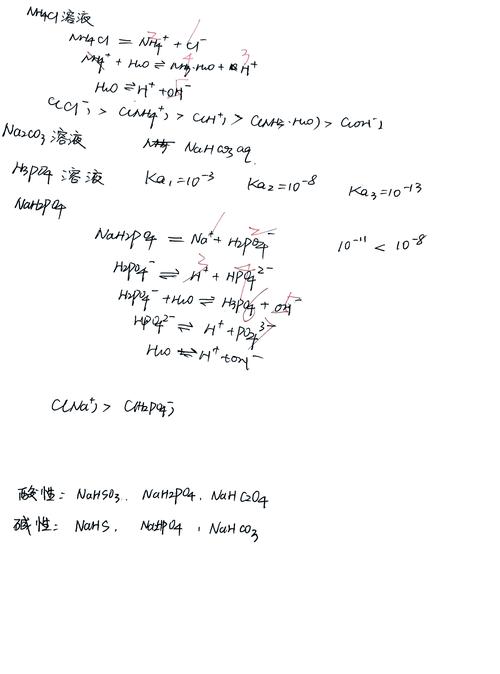 NH4Cl溶液
NH4Cl = NH4⁺ + Cl⁻
NH4⁺ + H2O ⇌ NH3·H2O + H⁺
H2O ⇌ H⁺ + OH⁻
C(Cl⁻) > C(NH4⁺) > C(H⁺) > C(NH3·H2O) > C(OH⁻)
Na2CO3溶液 NaHCO3 aq
H3PO4 溶液 Ka₁=10⁻³ Ka₂=10⁻⁸ Ka₃=10⁻¹³
NaH2PO4
NaH2PO4 = Na⁺ + H2PO4⁻ 10⁻¹¹ < 10⁻⁸
H2PO4⁻ ⇌ H⁺ + HPO4²⁻
H2PO4⁻ + H2O ⇌ H3PO4 + OH⁻
HPO4²⁻ ⇌ H⁺ + PO4³⁻
H2O ⇌ H⁺ + OH⁻
C(Na⁺) > C(H2PO4⁻)
酸性: NaHSO3、NaH2PO4、NaHC2O4
碱性: NaHS、NaHPO4、NaHCO3